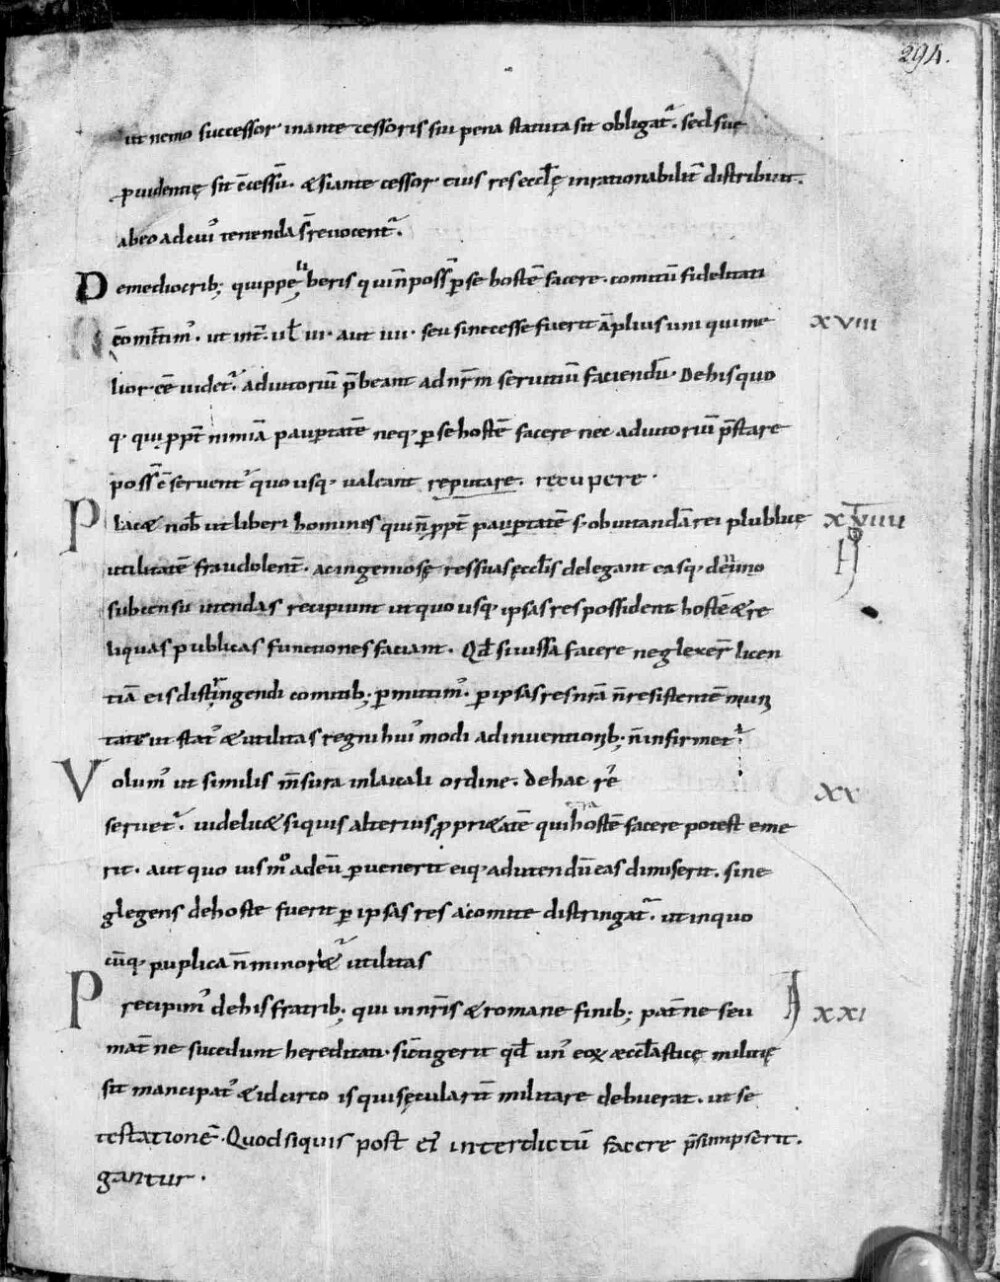 294.
ut nemo successor inante cessoris sui pena statuta sit obligat᷑. sed sue
p̱uidentię sit c̄cessū. & si ante cessor eius res eccl̄ę inrationabilit̄ distribuit.
ab eo ad cui᾽ tenenda s̄r revocent᷑.
De mediocrib; quippe liberis qui n̄ poss̄ p̱ se hostē facere. comitū fidelitati
c̄omittim᾽. ut int̄. ul̄ iii. aut iiii. seu si necesse fuerit āplius uni qui me XVIII
lior ēe uidet᷑. adiutoriū p̄beant ad nr̄m seruitiū faciendū. De his quo
q. qui ppt̄ nimiā paup̱tatē neq. p̱ se hostē facere nec adiutoriū p̄stare
poss̄ c̄seruent᷑ quo usq. ualeant reputare. recupere.
Placæ nob̄ ut liberi homines qui n̄ ppt̄ paup̱tatē s; ob uitandā rei plublice XVIIII
utilitatē fraudolent̄. ac ingeniose res suas ęccl̄is delegant easq. denuo
sub censu utendas recipiunt ut quo usq. ipsas res possident hostē & re
liquas publicas functiones faciant. Qd̄ si iussā facere neglexer̄ licen
tiā eis distringendi comitib; p̱mittim᾽. p̱ ipsas res nr̄a n̄ resistente emun
tate ut stat᾽ & utilitas regni hui᾽ modi adinuentionib; n̄ infirmet᷑.
Volum᾽ ut similis m̄sura in laicali ordine. de hac re
seruet᷑. uidelicæ si quis alterius p̱priætatē qui hostē facere potest eme XX
rit. aut quo uis mᵒ ad eū p̱uenerit eiq. ad utendū eas dimiserit. si ne
glegens de hoste fuerit p̱ ipsas res a comite distringat᷑. ut in quo
cūq. puplica n̄ minoret᷑ utilitas
Precipim᾽ de his fratrib; qui in nr̄is & romane finib; pat̄ne seu XXI
mat̄ne sucedunt hereditati. si c̄tigerit qd̄ un᾽ eoꝝ æccl̄astice militię
sit mancipat᾽ & idcirco is qui sęcularit̄ militare debuerat. ut se
testationē. Quod si quis post ei᾽ interdictū facere p̄sumpserit.
gantur.